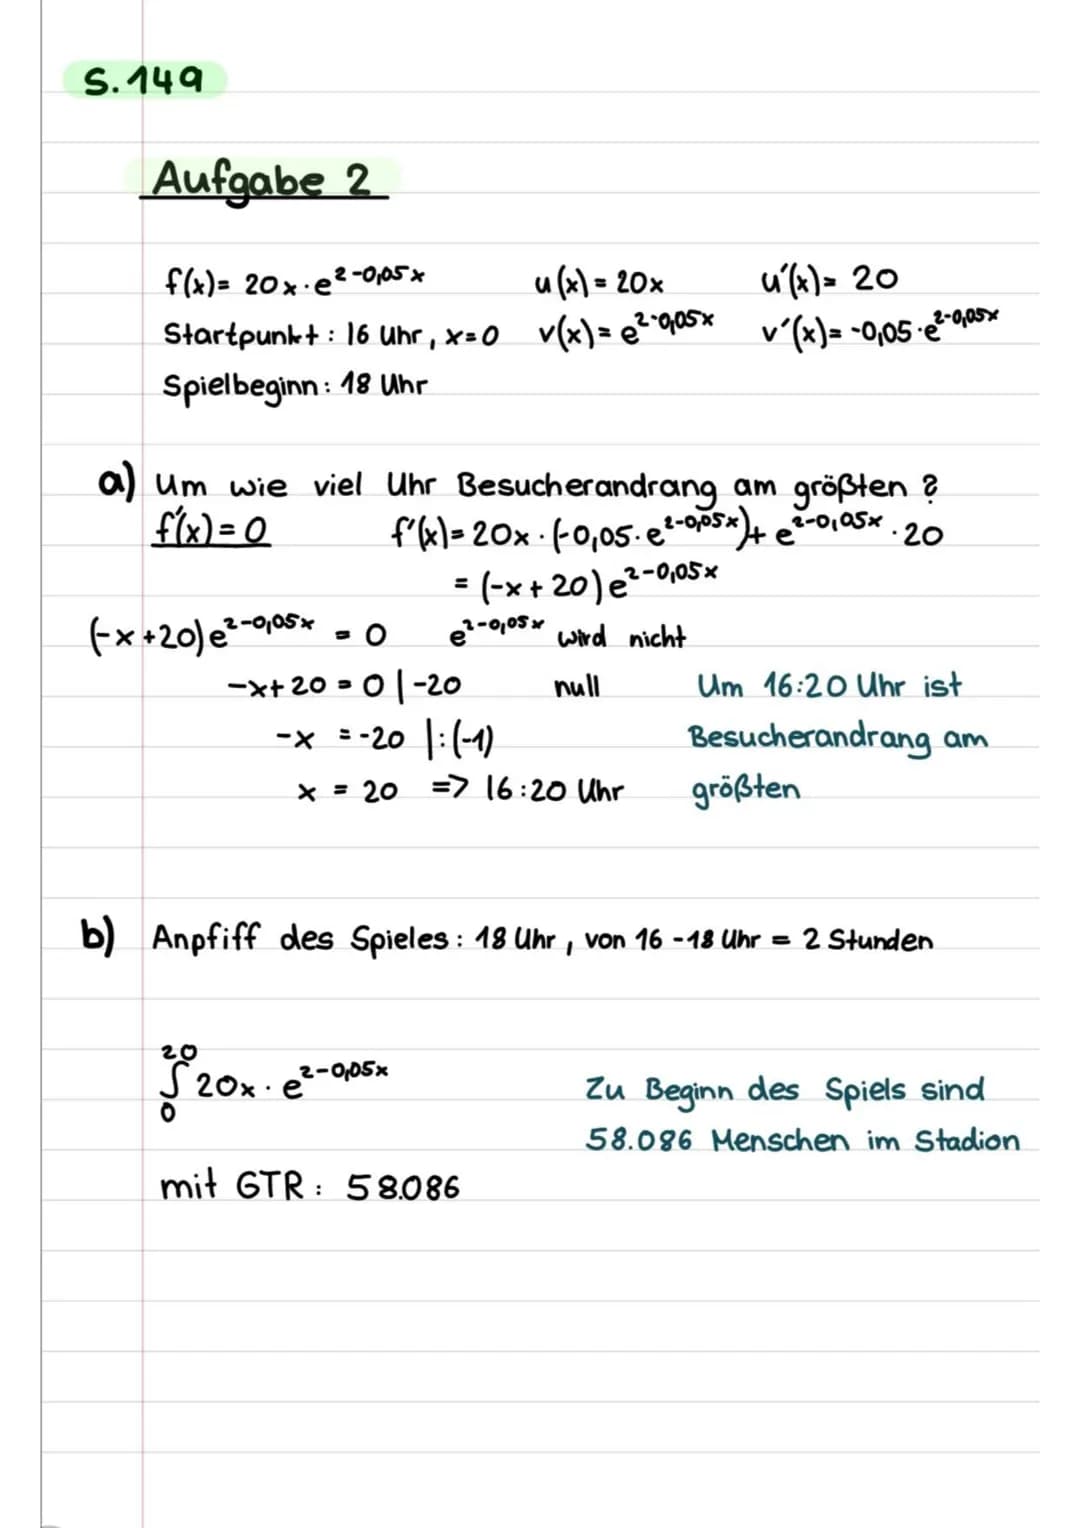 S.149
Aufgabe 2
f(x)= 20x·e^2-0,05x u(x)=20x u'(x)= 20
Startpunkt: 16 Uhr, x=0 v(x)= e^2-0,05x v'(x)= -0,05·e^2-0,05x
Spielbeginn: 18 Uhr
a) Um wie viel Uhr Besucherandrang am größten?
f'(x)=0 f'(x)= 20x·(-0,05·e^2-0,05x)+e^2-0,05x·20
= (-x+20)e^2-0,05x
(-x+20)e^2-0,05x = 0 e^2-0,05x wird nicht
-x+20=0 |-20 null Um 16:20 Uhr ist
-x =-20 |:(-1) Besucherandrang am
x = 20 => 16:20 Uhr größten
b) Anpfiff des Spieles: 18 Uhr, von 16-18 Uhr = 2 Stunden
20
∫ 20x·e^2-0,05x Zu Beginn des Spiels sind
0
58.086 Menschen im Stadion
mit GTR: 58.086